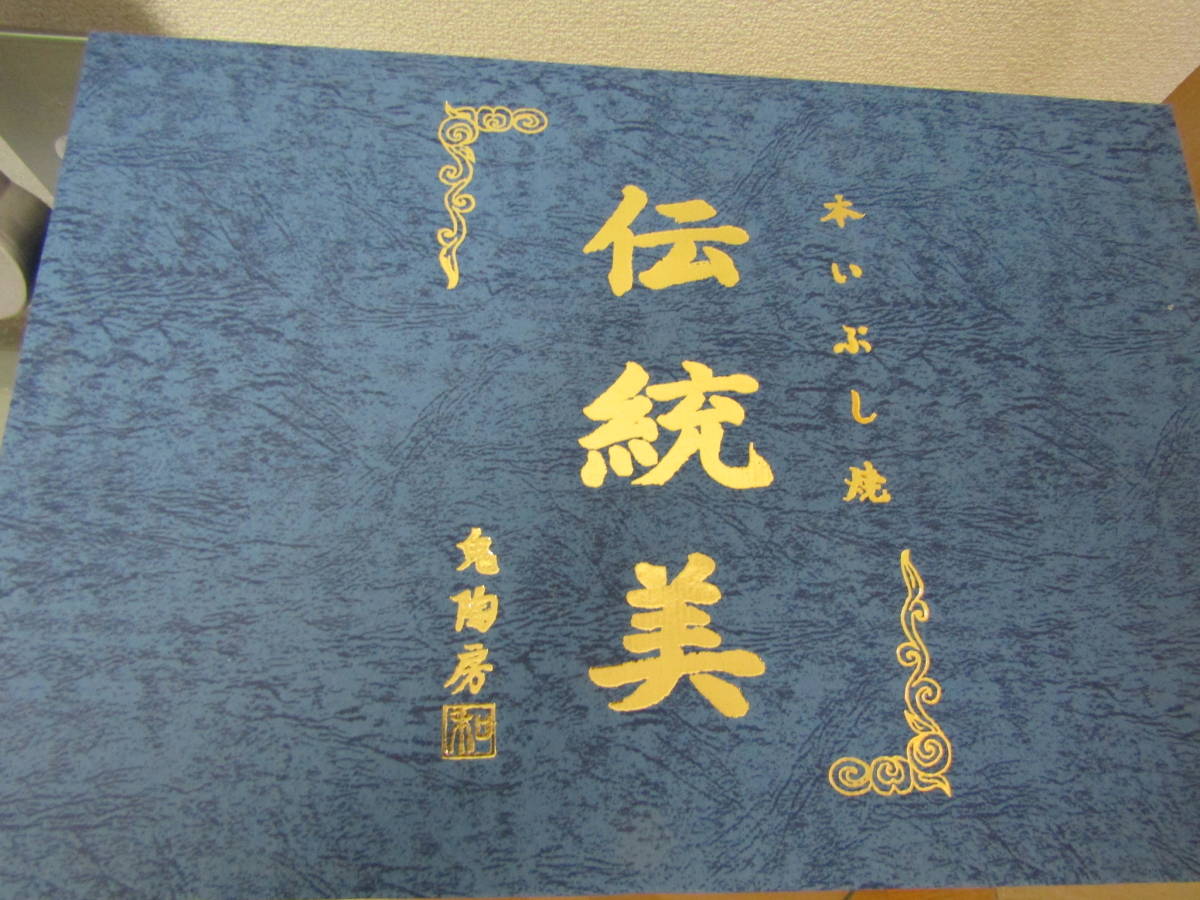 本いぶし焼
伝統美
鬼陶房
和